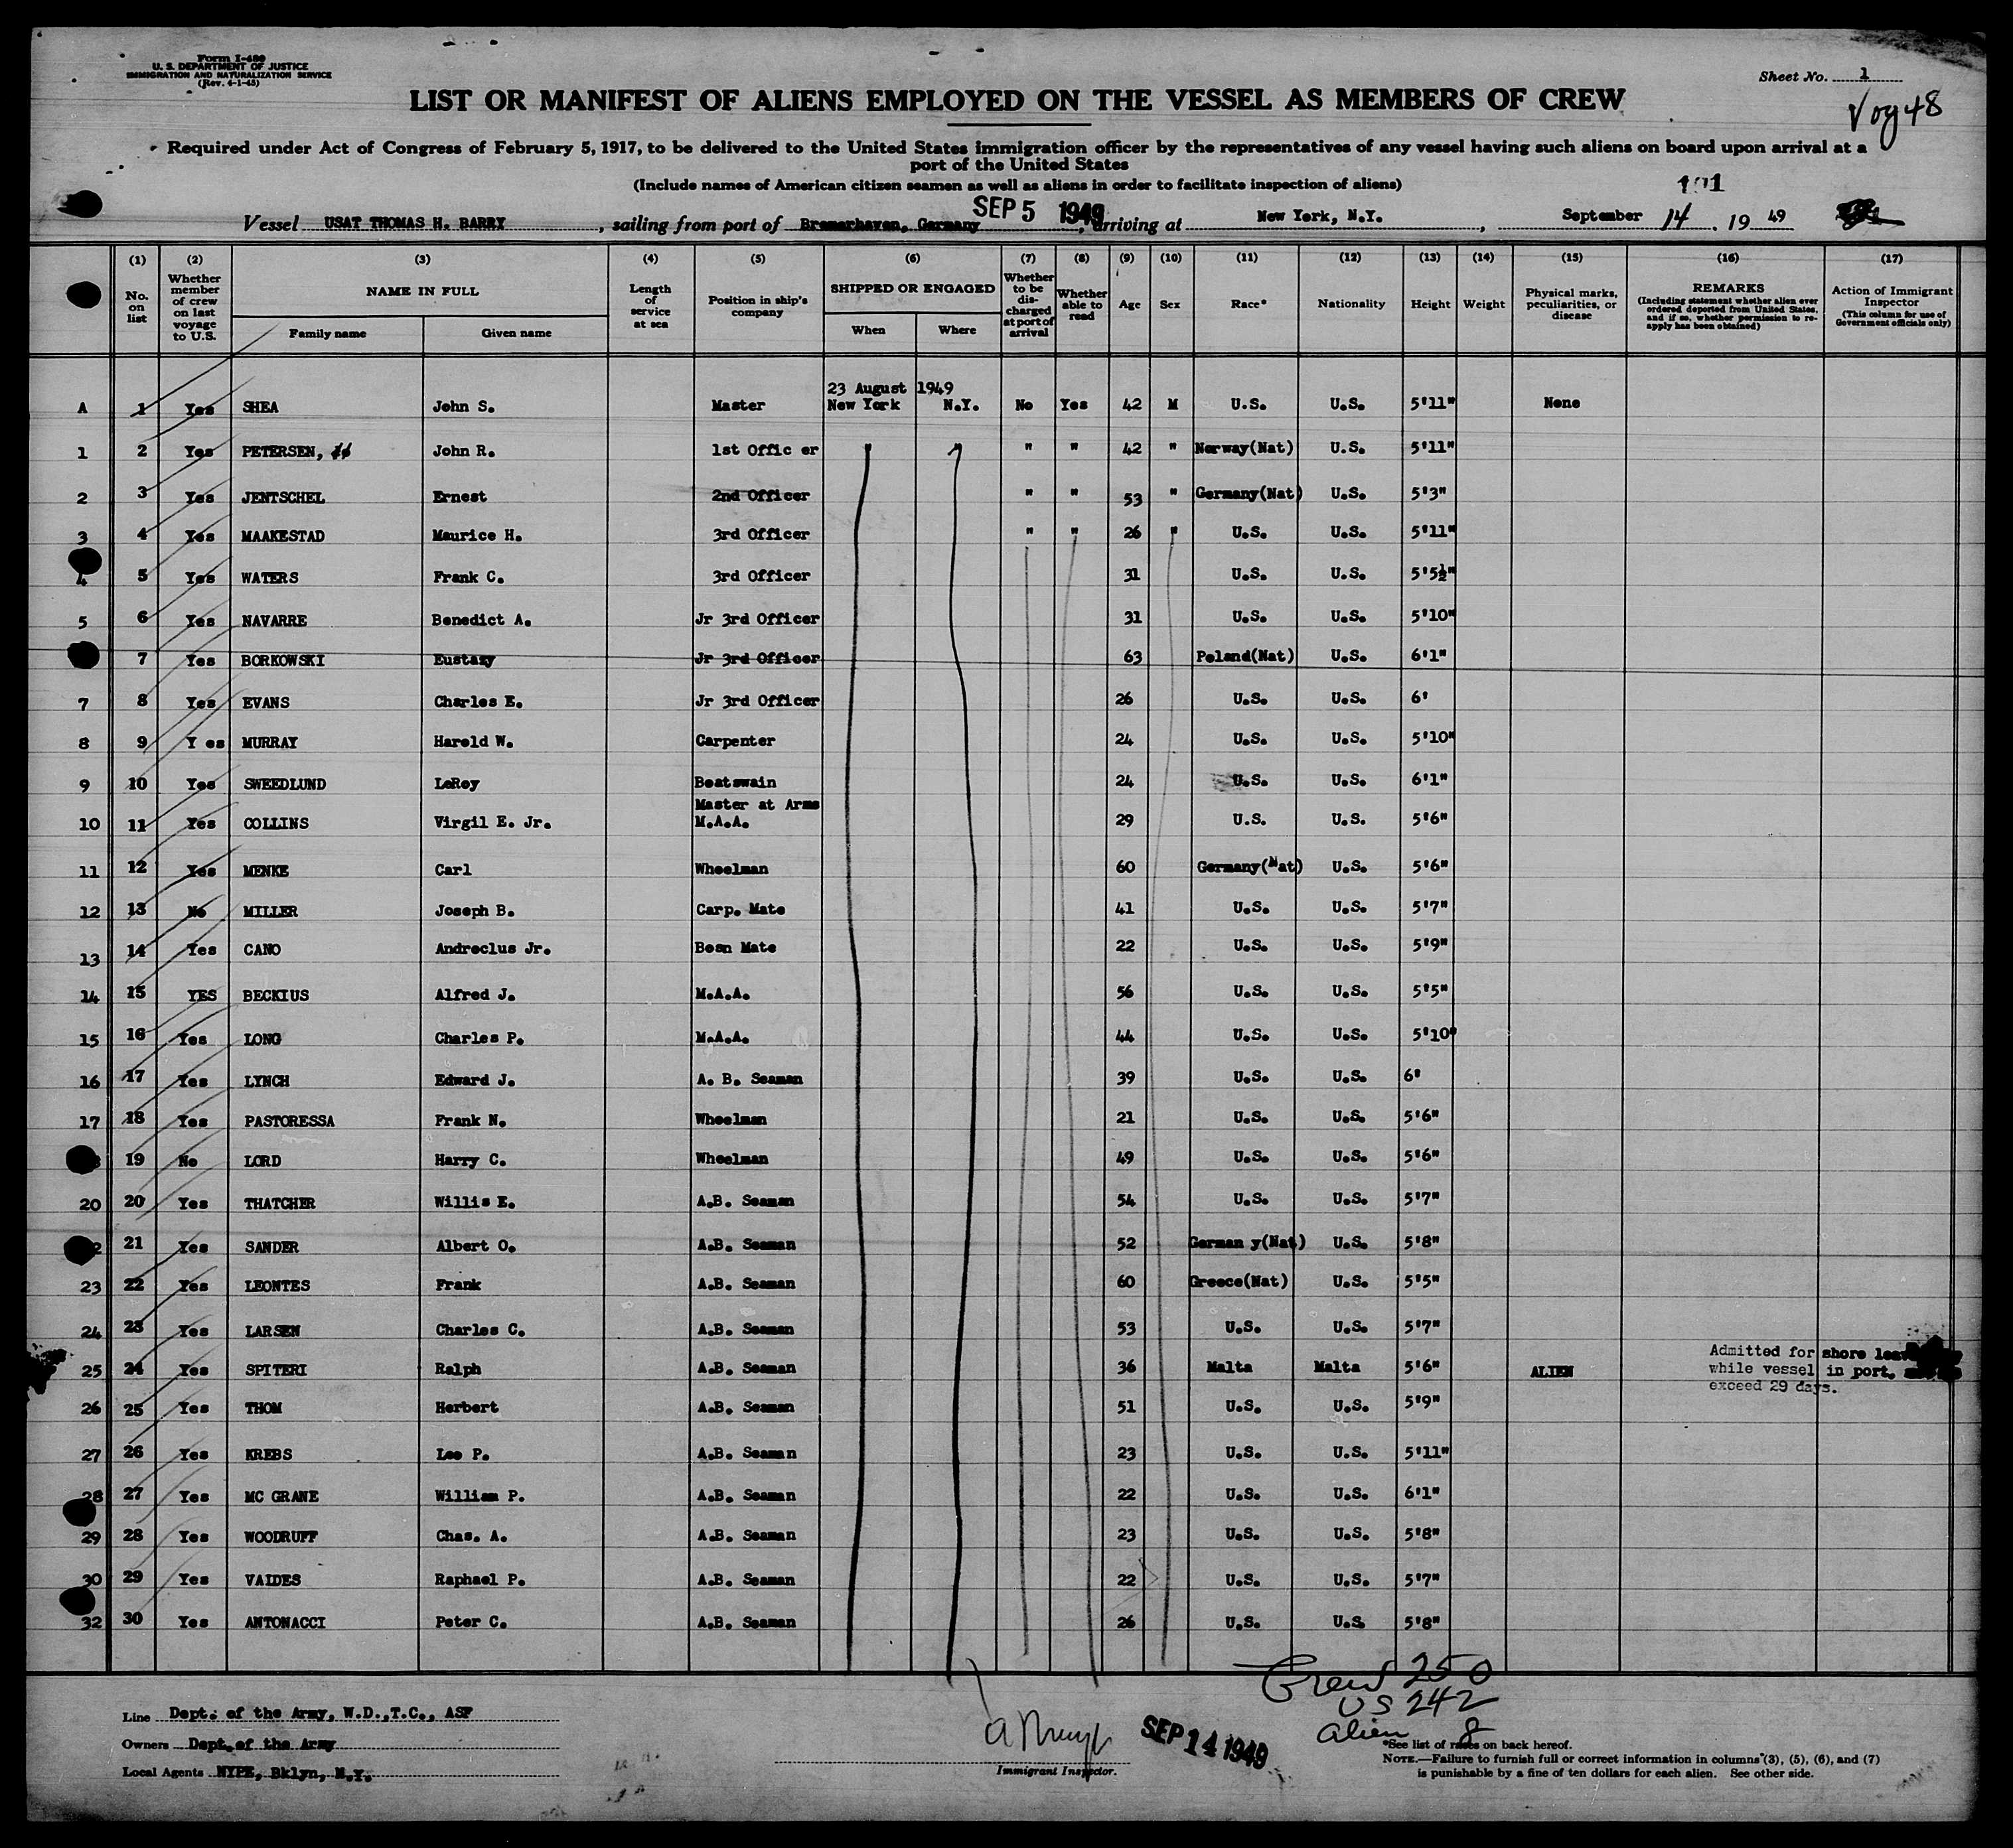 Form I-480
U. S. DEPARTMENT OF JUSTICE
IMMIGRATION AND NATURALIZATION SERVICE
(Rev. 4-1-45)
Sheet No. 1
LIST OR MANIFEST OF ALIENS EMPLOYED ON THE VESSEL AS MEMBERS OF CREW
Voy 48
Required under Act of Congress of February 5, 1917, to be delivered to the United States immigration officer by the representatives of any vessel having such aliens on board upon arrival at a
port of the United States
(Include names of American citizen seamen as well as aliens in order to facilitate inspection of aliens)
Vessel USAT THOMAS H. BARRY, sailing from port of Bremerhaven, Germany SEP 5 1949, arriving at New York, N.Y., September 14, 1949
(1) (2) (3) (4) (5) (6) (7) (8) (9) (10) (11) (12) (13) (14) (15) (16) (17)
No. on list
Whether member of crew on last voyage to U.S.
NAME IN FULL
Family name Given name
Length of service at sea
Position in ship's company
SHIPPED OR ENGAGED
When Where
Whether to be discharged at port of arrival
Whether able to read
Age
Sex
Race*
Nationality
Height
Weight
Physical marks, peculiarities, or disease
REMARKS
(Including statement whether alien ever ordered deported from United States, and if so, whether permission to re-apply has been obtained)
Action of Immigrant Inspector
(This column for use of Government officials only)
23 August 1949
A 1 Yes SHEA John S. Master New York N.Y. No Yes 42 M U.S. U.S. 5'11" None
1 2 Yes PETERSEN, John R. 1st Offic er " " " " 42 " Norway(Nat) U.S. 5'11"
2 3 Yes JENTSCHEL Ernest 2nd Officer " " 53 " Germany(Nat) U.S. 5'3"
3 4 Yes MAAKESTAD Maurice H. 3rd Officer " " 26 " U.S. U.S. 5'11"
4 5 Yes WATERS Frank C. 3rd Officer 31 U.S. U.S. 5'5½"
5 6 Yes NAVARRE Benedict A. Jr 3rd Officer 31 U.S. U.S. 5'10"
7 Yes BORKOWSKI Eustazy Jr 3rd Officer 63 Poland(Nat) U.S. 6'1"
7 8 Yes EVANS Charles E. Jr 3rd Officer 26 U.S. U.S. 6'
8 9 Y es MURRAY Harold W. Carpenter 24 U.S. U.S. 5'10"
9 10 Yes SWEEDLUND LeRoy Boatswain 24 U.S. U.S. 6'1"
Master at Arms
10 11 Yes COLLINS Virgil E. Jr. M.A.A. 29 U.S. U.S. 5'6"
11 12 Yes MENKE Carl Wheelman 60 Germany(Nat) U.S. 5'6"
12 13 No MILLER Joseph B. Carp. Mate 41 U.S. U.S. 5'7"
13 14 Yes CANO Androclus Jr. Bosn Mate 22 U.S. U.S. 5'9"
14 15 YES BECKIUS Alfred J. M.A.A. 56 U.S. U.S. 5'5"
15 16 Yes LONG Charles P. M.A.A. 44 U.S. U.S. 5'10"
16 17 Yes LYNCH Edward J. A. B. Seaman 39 U.S. U.S. 6'
17 18 Yes PASTORESSA Frank N. Wheelman 21 U.S. U.S. 5'6"
19 No LORD Harry C. Wheelman 49 U.S. U.S. 5'6"
20 20 Yes THATCHER Willis E. A.B. Seaman 54 U.S. U.S. 5'7"
21 Yes SANDER Albert O. A.B. Seaman 52 German y(Nat) U.S. 5'8"
23 22 Yes LEONTES Frank A.B. Seaman 60 Greece(Nat) U.S. 5'5"
24 23 Yes LARSEN Charles C. A.B. Seaman 53 U.S. U.S. 5'7"
25 24 Yes SPITERI Ralph A.B. Seaman 36 Malta Malta 5'6" ALIEN Admitted for shore leave
while vessel in port,
exceed 29 days.
26 25 Yes THOM Herbert A.B. Seaman 51 U.S. U.S. 5'9"
27 26 Yes KREBS Leo P. A.B. Seaman 23 U.S. U.S. 5'11"
28 27 Yes MC GRANE William P. A.B. Seaman 22 U.S. U.S. 6'1"
29 28 Yes WOODRUFF Chas. A. A.B. Seaman 23 U.S. U.S. 5'8"
30 29 Yes VAIDES Raphael P. A.B. Seaman 22 U.S. U.S. 5'7"
32 30 Yes ANTONACCI Peter C. A.B. Seaman 26 U.S. U.S. 5'8"
Crew 250
US 242
alien 8
Line Dept. of the Army, W.D.,T.C., ASF
Owners Dept.of the Army
Local Agents NYPE, Bklyn, N.Y.
SEP 14 1949
Immigrant Inspector.
*See list of races on back hereof.
NOTE.—Failure to furnish full or correct information in columns (3), (5), (6), and (7)
is punishable by a fine of ten dollars for each alien. See other side.